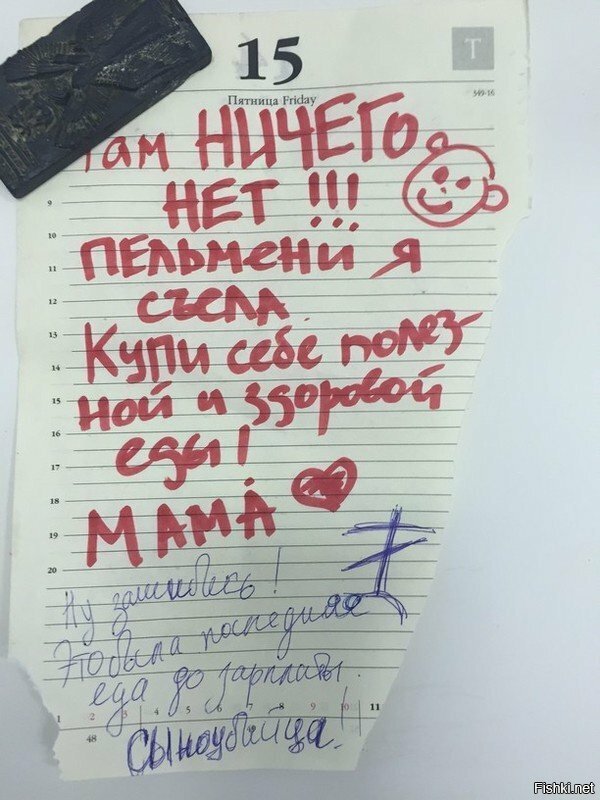 15
T
Пятница Friday
349-16
Там НИЧЕГО
НЕТ !!!
ПЕЛЬМЕНИ Я
СЪЕЛА
КУПИ себе полез-
ной и здоровой
еды!
МАМА
9
10
11
12
13
14
15
16
17
18
19
20
Ну зашибись!
Это была последняя
еда до зарплаты.
1 2 3 4 5 6 7 8 9 10 11
48
Сыноубийца!
Fishki.net